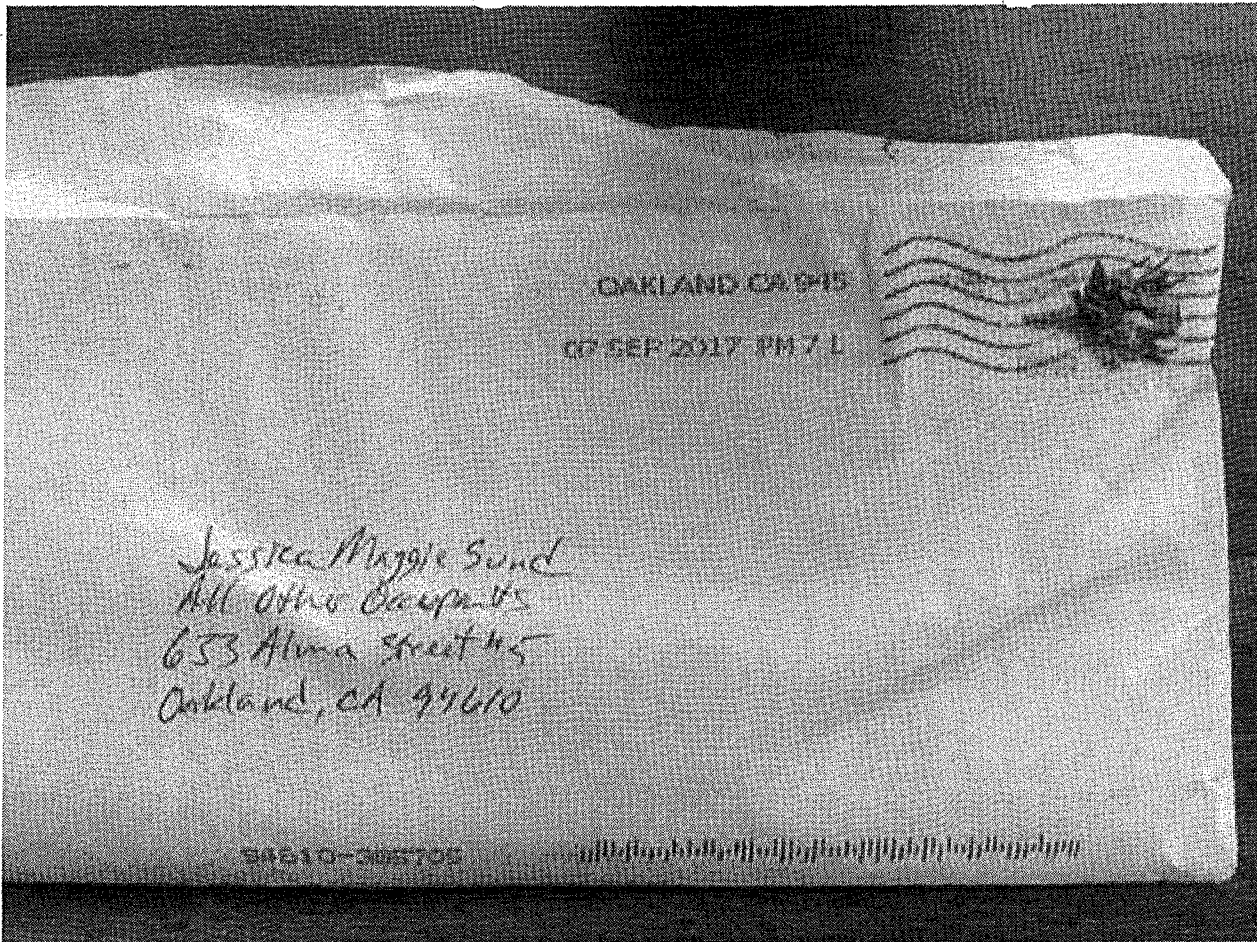 OAKLAND CA 945
07 SEP 2017 PM 7 L
Jessica Maggie Sund
All Other Occupants
633 Alma Street #5
Oakland, CA 94610